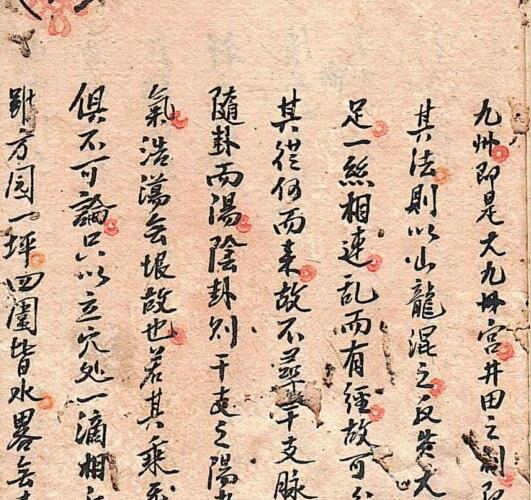 九州即是大九州宮井田之制
其法則以山龍混之反失大
足一絲相連乱而有經故可
其從何而来故不尋干支脉
隨卦而湯陰卦则干支之陽
氣浩蕩無垠故也若其乘
俱不可論只以立穴处一滴相
雖方园一坪四圍皆水畧無